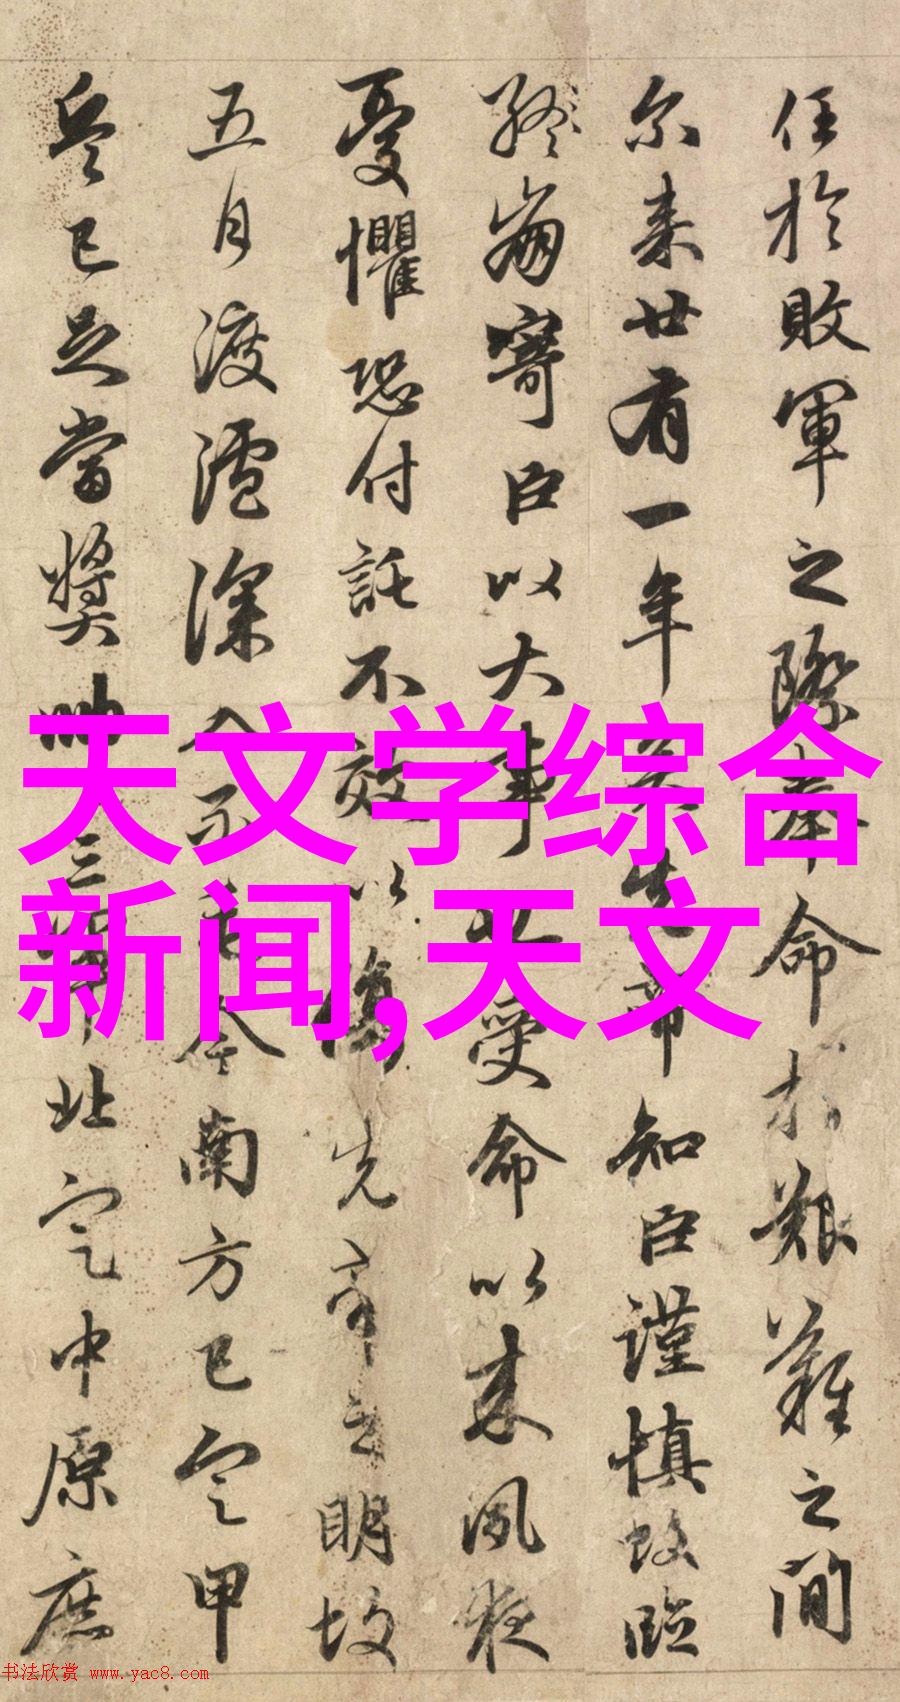 任於敗軍之際奉命於艱難之間
尔来廿有一年矣先帝知臣謹慎故臨
終崩寄臣以大事也受命以来夙夜
憂懼恐付託不效以傷先帝之明故
五月渡瀘深入不毛今南方已定甲
兵已足當獎帥三軍北定中原庶
天文学综合
新闻,天文
书法欣赏 www.yac8.com